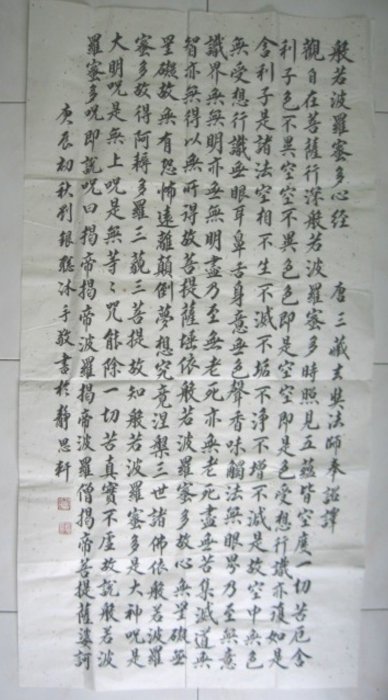 般若波羅蜜多心經 唐三藏玄奘法師奉詔譯
觀自在菩薩行深般若波羅蜜多時照見五蘊皆空度一切苦厄舍
利子色不異空空不異色色即是空空即是色受想行識亦復如是
舍利子是諸法空相不生不滅不垢不淨不增不減是故空中無色
無受想行識無眼耳鼻舌身意無色聲香味觸法無眼界乃至無意
識界無無明亦無無明盡乃至無老死亦無老死盡無苦集滅道無
智亦無得以無所得故菩提薩埵依般若波羅蜜多故心無罣礙無
罣礙故無有恐怖遠離顛倒夢想究竟涅槃三世諸佛依般若波羅
蜜多故得阿耨多羅三藐三菩提故知般若波羅蜜多是大神呪是
大明呪是無上呪是無等〻咒能除一切苦真實不虛故說般若波
羅蜜多呪即說呪曰揭帝揭帝波羅揭帝波羅僧揭帝菩提薩婆訶
庚辰初秋劉銀聰沐手敬書於靜思軒